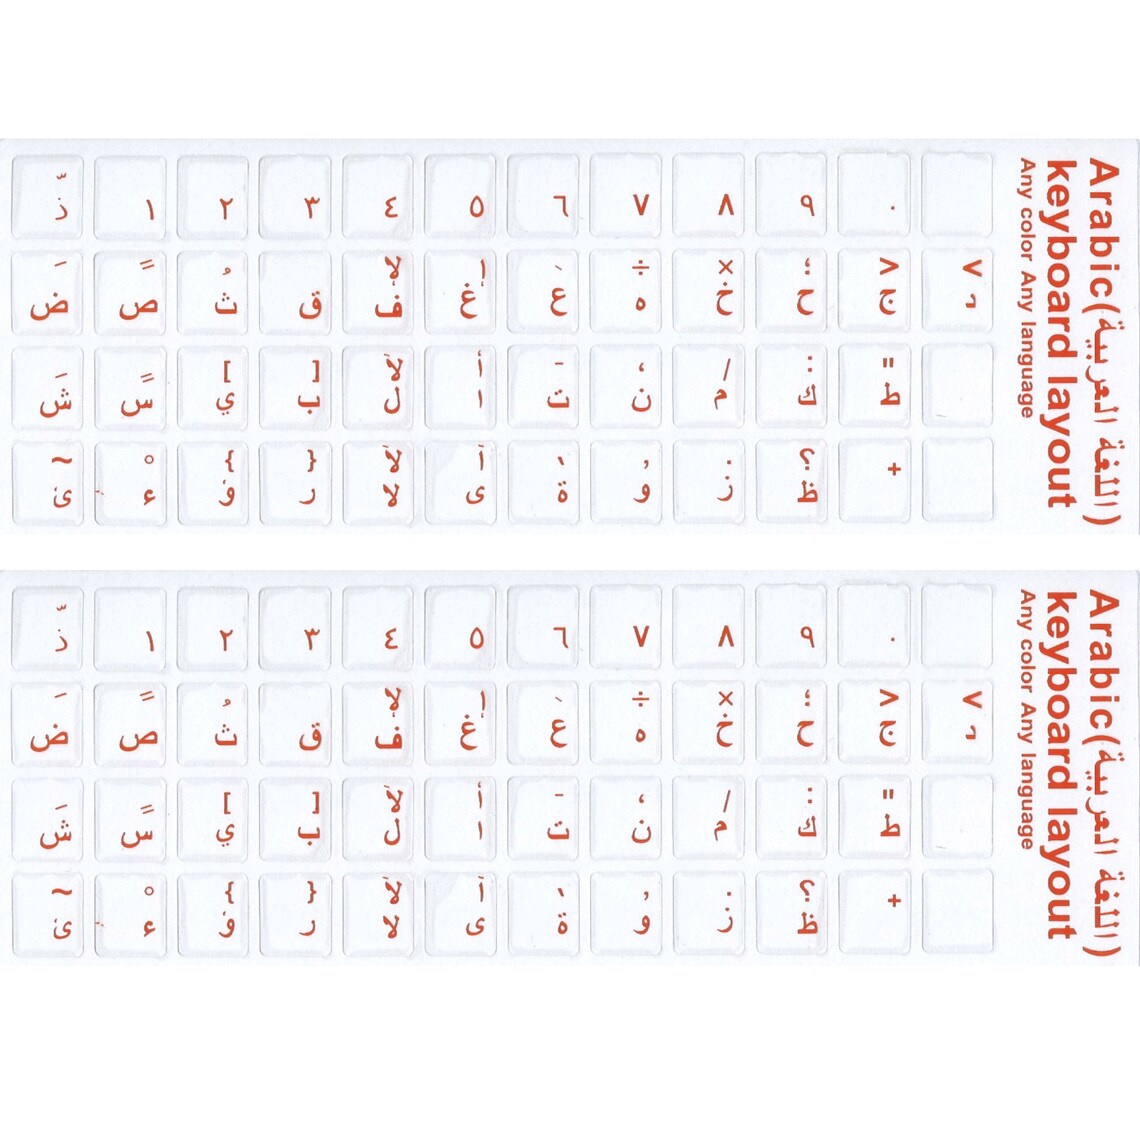 Arabic(اللغة العربية)
keyboard layout
Any color Any language
ّ ذ
١
٢
٣
٤
٥
٦
٧
٨
٩
٠
َ ض
ً ص
ُ ث
ق
لإ ف
إ غ
‘ ع
÷ ه
× خ
؛ ح
< ج
> د
ش
س
[ ي
] ب
لأ ل
أ ا
ـ ت
، ن
/ م
: ك
" ط
~ ئ
ْ ء
{ ؤ
} ر
لآ لا
آ ى
’ ة
, و
. ز
؟ ظ
+
Arabic(اللغة العربية)
keyboard layout
Any color Any language
ّ ذ
١
٢
٣
٤
٥
٦
٧
٨
٩
٠
َ ض
ً ص
ُ ث
ق
لإ ف
إ غ
‘ ع
÷ ه
× خ
؛ ح
< ج
> د
ش
س
[ ي
] ب
لأ ل
أ ا
ـ ت
، ن
/ م
: ك
" ط
~ ئ
ْ ء
{ ؤ
} ر
لآ لا
آ ى
’ ة
, و
. ز
؟ ظ
+